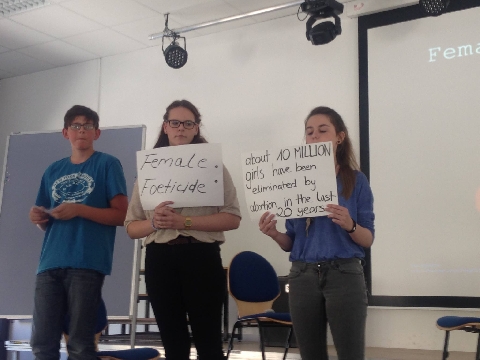 Fema
Female
Foeticide:
about 10 MILLION
girls have been
eliminated by
abortion in the last
20 years